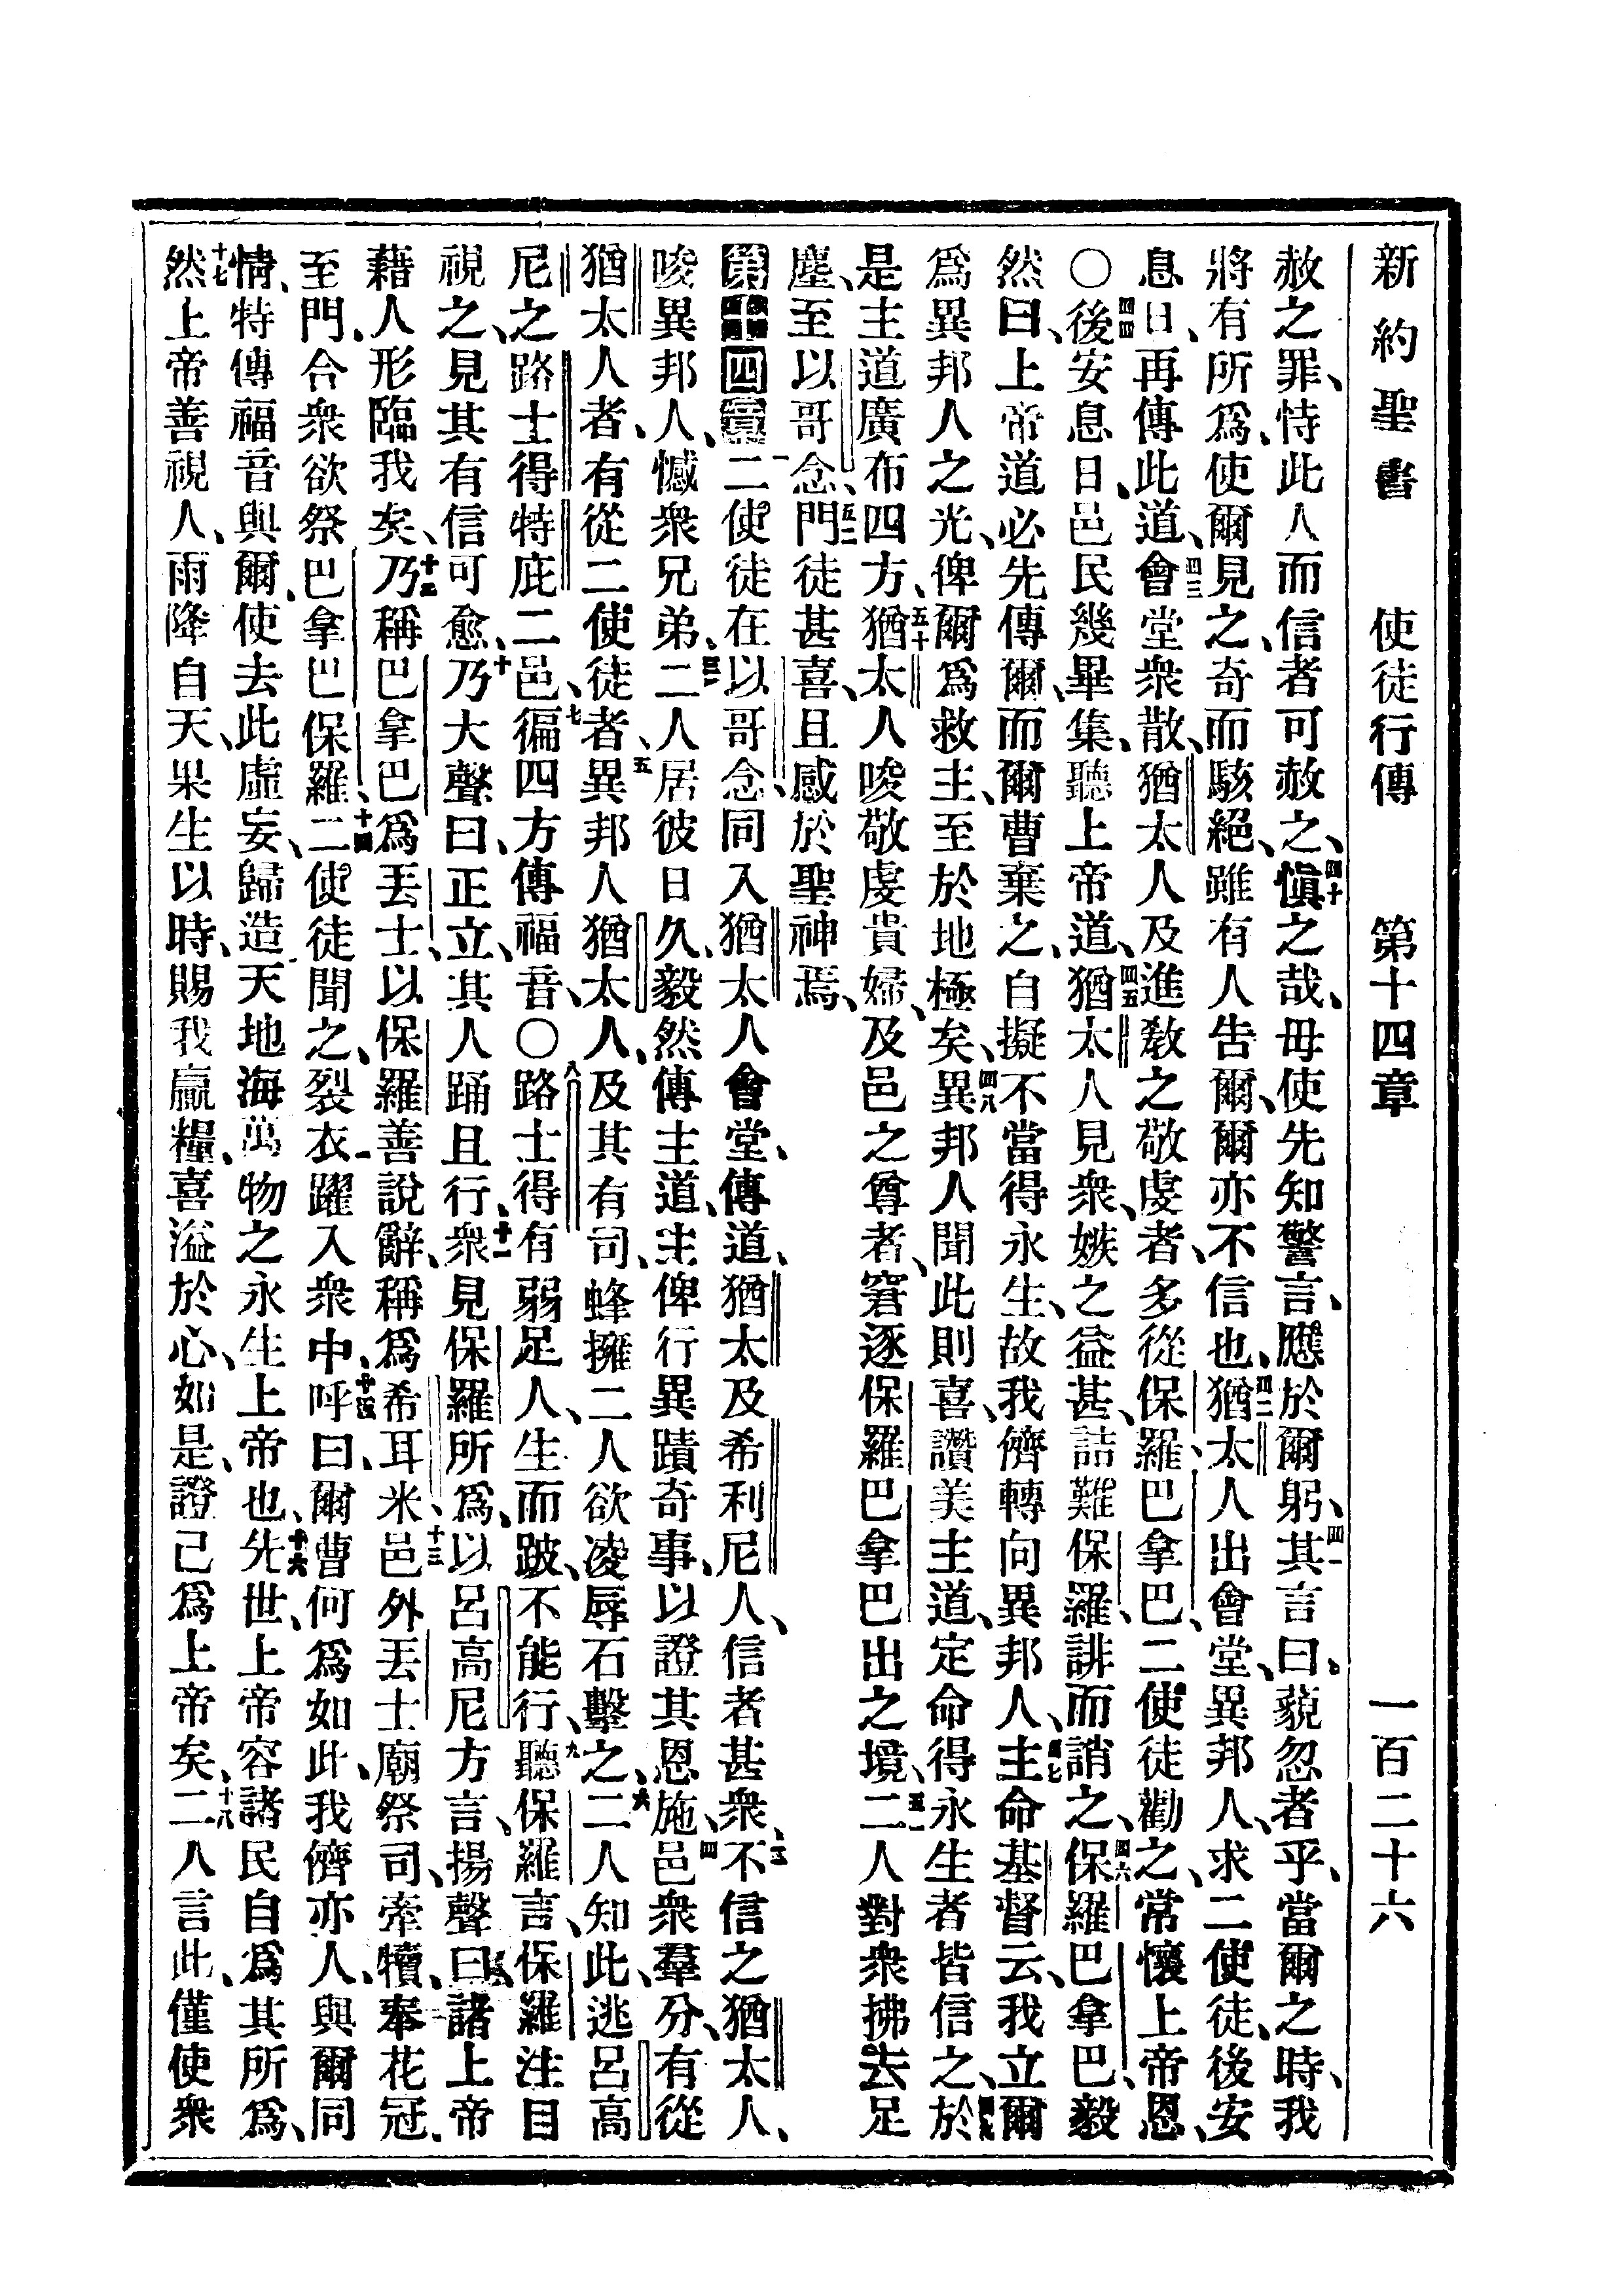 新約聖書 使徒行傳 第十四章 一百二十六
赦之罪、恃此人而信者可赦之、四十愼之哉、毋使先知警言、應於爾躬、四一其言曰、藐忽者乎、當爾之時、我
將有所爲、使爾見之、奇而駭絕、雖有人吿爾、爾亦不信也、四二猶太人出會堂、異邦人、求二使徒、後安
息日、再傳此道、四三會堂衆散、猶太人及進敎之敬虔者、多從保羅、巴拿巴、二使徒勸之、常懷上帝恩、
〇四四後安息日、邑民幾畢集、聽上帝道、四五猶太人見衆、嫉之益甚、詰難保羅、誹而誚之、四六保羅巴拿巴、毅
然曰、上帝道必先傳爾、而爾曹棄之、自擬不當得永生、故我儕轉向異邦人、四七主命基督云、我立爾
爲異邦人之光、俾爾爲救主、至於地極矣、四八異邦人聞此則喜、讚美主道、定命得永生者皆信之、四九於
是主道廣布四方、五十猶太人唆敬虔貴婦、及邑之尊者、窘逐保羅巴拿巴出之境、五一二人對衆拂去足
塵、至以哥念、五二門徒甚喜、且感於聖神焉、
第十四章 一二使徒在以哥念、同入猶太人會堂、傳道、猶太及希利尼人、信者甚衆、二不信之猶太人、
唆異邦人、憾衆兄弟、三二人居彼日久、毅然傳主道、主俾行異蹟奇事、以證其恩施、四邑衆羣分、有從
猶太人者、有從二使徒者、五異邦人猶太人、及其有司、蜂擁二人欲凌辱石擊之、六二人知此、逃呂高
尼之路士得特庇二邑、七徧四方傳福音、〇八路士得有弱足人、生而跛、不能行、九聽保羅言、保羅注目
視之、見其有信可愈、十乃大聲曰、正立、其人踊且行、十一衆見保羅所爲、以呂高尼方言、揚聲曰、諸上帝
藉人形臨我矣、十二乃稱巴拿巴爲丟士、以保羅善說辭、稱爲希耳米、十三邑外丟士廟祭司、牽犢、奉花冠、
至門、合衆欲祭巴拿巴保羅、十四二使徒聞之、裂衣躍入衆中、十五呼曰、爾曹何爲如此、我儕亦人、與爾同
情、特傳福音與爾、使去此虛妄、歸造天地海萬物之永生上帝也、十六先世、上帝容諸民自爲其所爲、
十七然上帝善視人、雨降自天、果生以時、賜我贏糧、喜溢於心、如是、證己爲上帝矣、十八二人言此、僅使衆